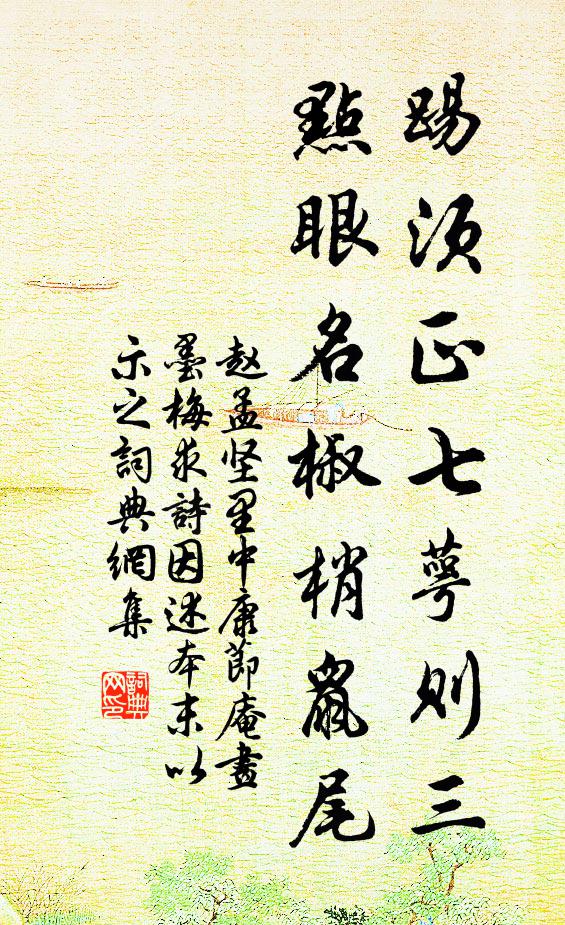 踢须正七萼则三
點眼名椒梢鼠尾
赵孟坚里中康節庵畫
墨梅求詩因述本末以
示之詞典網集
詞典
网印